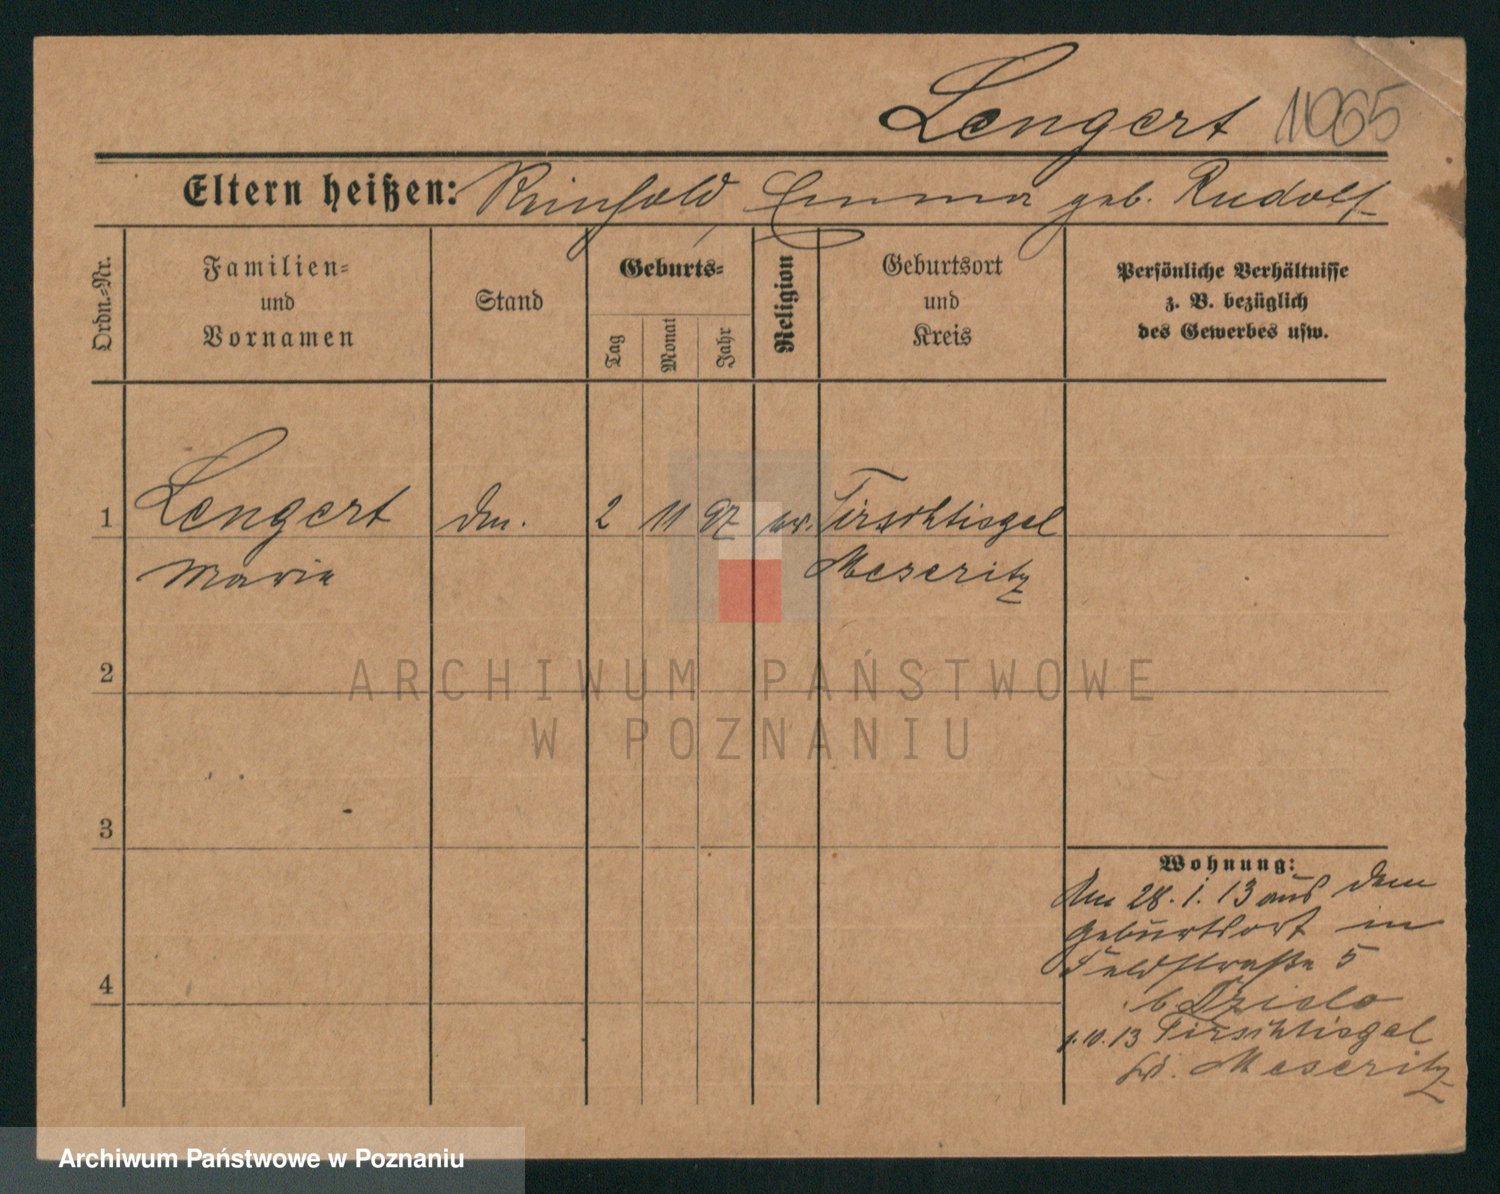 Lengert 11065
Eltern heißen: Reinhold Emma geb. Rudolf
Ordn.=Nr.
Familien=
und
Vornamen
Stand
Geburts=
Tag
Monat
Jahr
Religion
Geburtsort
und
Kreis
Persönliche Verhältnisse
z. B. bezüglich
des Gewerbes usw.
1 Lengert Dm. 2 11 97 ev. Tirschtiegel
Marie Meseritz
2
ARCHIWUM PAŃSTWOWE
W POZNANIU
3
Wohnung:
Am 28. 1. 13 aus dem
Geburtsort in
Feldstraße 5
b
4
1.10.13 Tirschtiegel
Meseritz
Archiwum Państwowe w Poznaniu